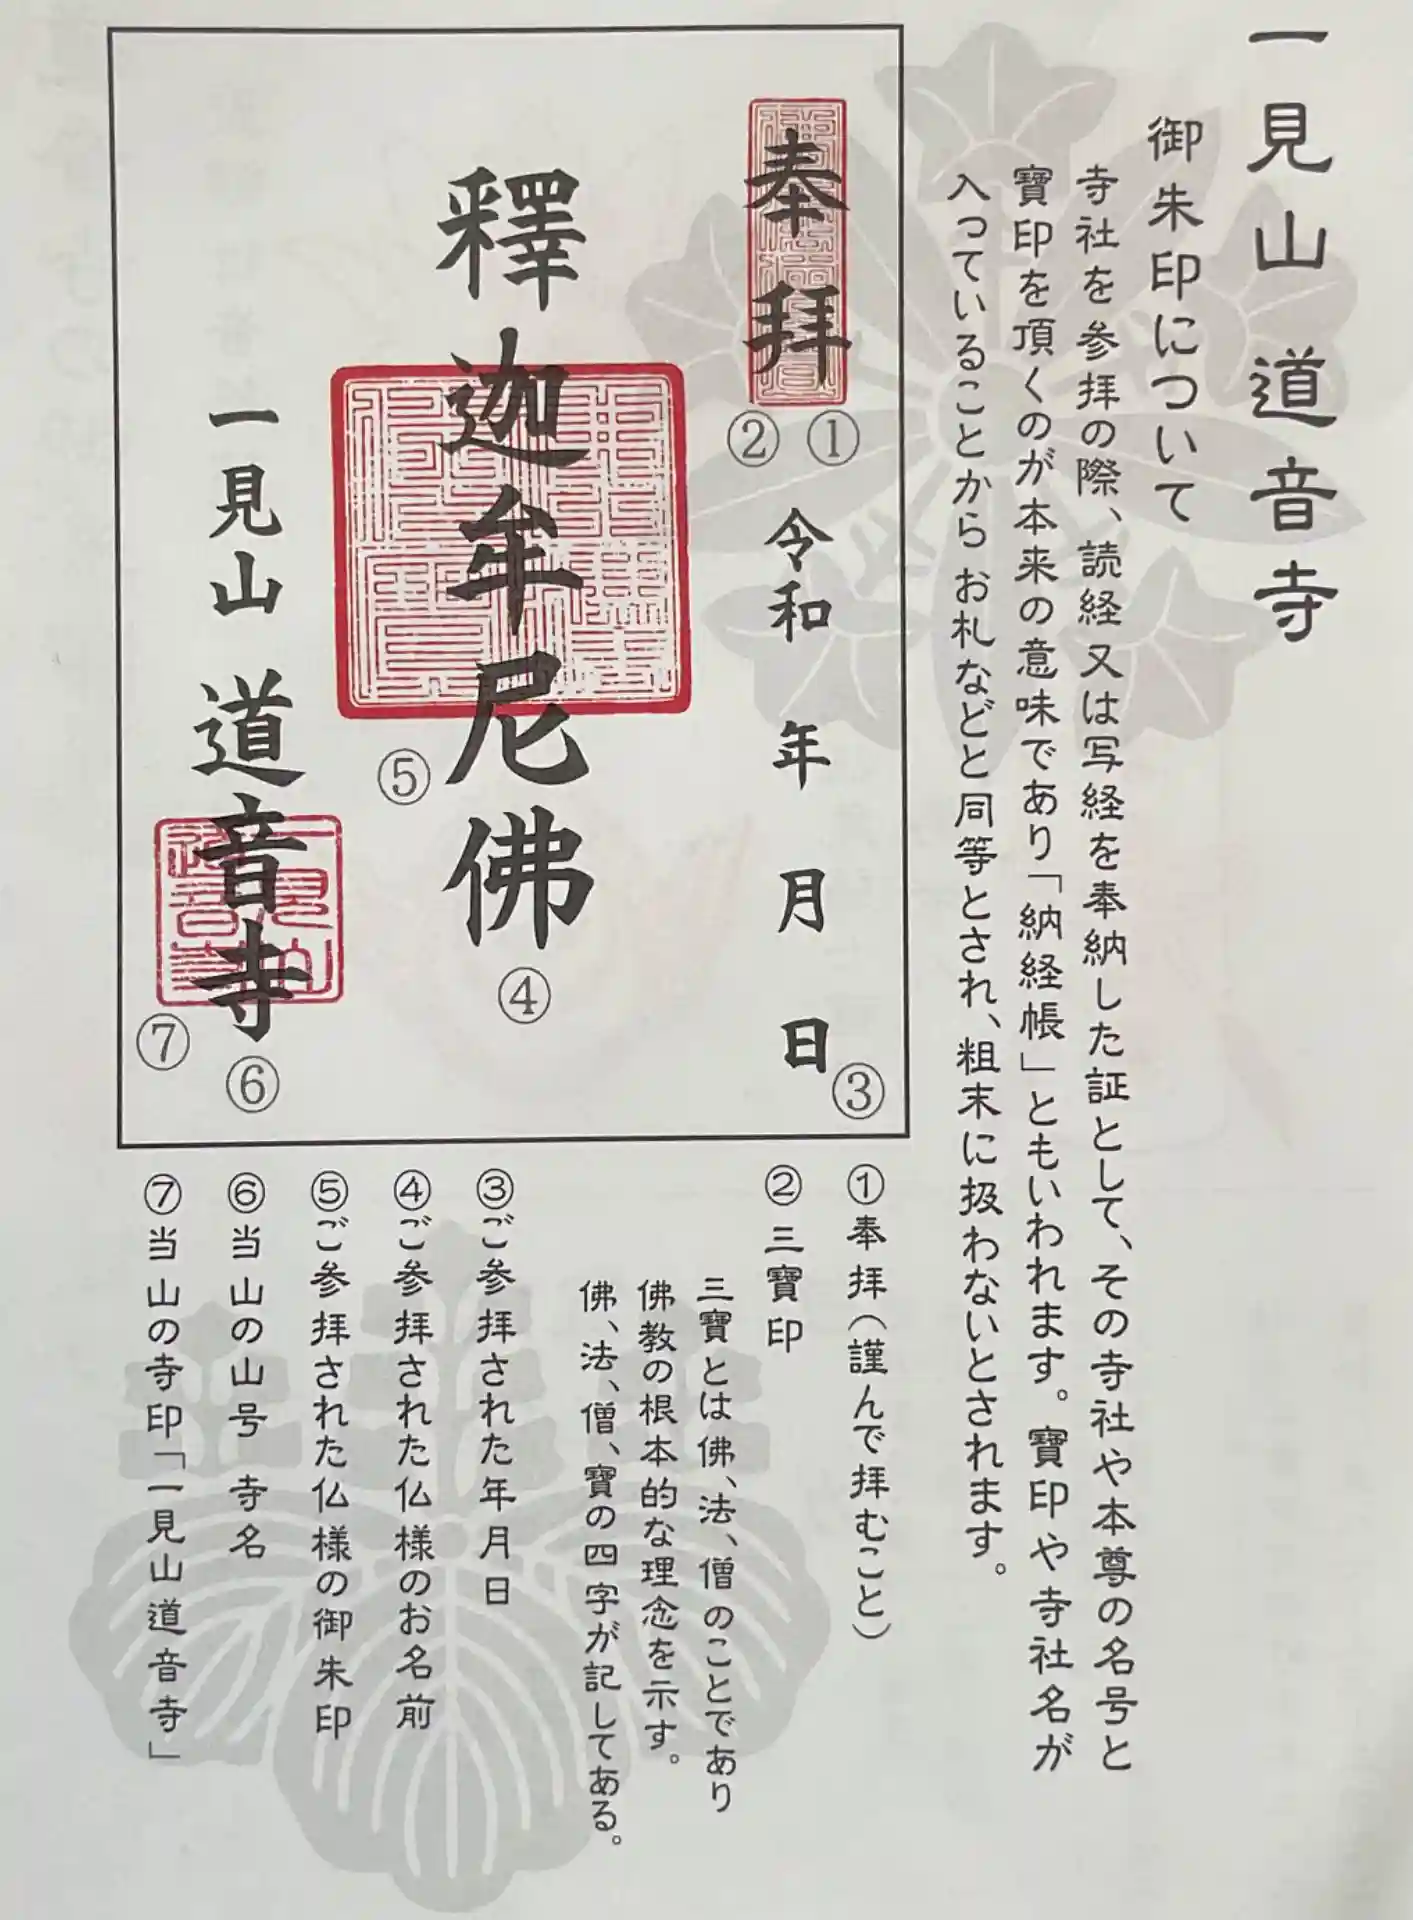 一見山 道音寺
御朱印について
寺社を参拝の際、読経又は写経を奉納した証として、その寺社や本尊の名号と
寶印を頂くのが本来の意味であり「納経帳」ともいわれます。寶印や寺社名が
入っていることから お札などと同等とされ、粗末に扱わないとされます。
奉拝
① ②
令和 年 月 日
③
釋迦牟尼佛
④
⑤
一見山 道音寺
⑥
⑦
①奉拝(謹んで拝むこと)
②三寶印
三寶とは佛、法、僧のことであり
佛教の根本的な理念を示す。
佛、法、僧、寶の四字が記してある。
③ご参拝された年月日
④ご参拝された仏様のお名前
⑤ご参拝された仏様の御朱印
⑥当山の山号 寺名
⑦当山の寺印「一見山道音寺」